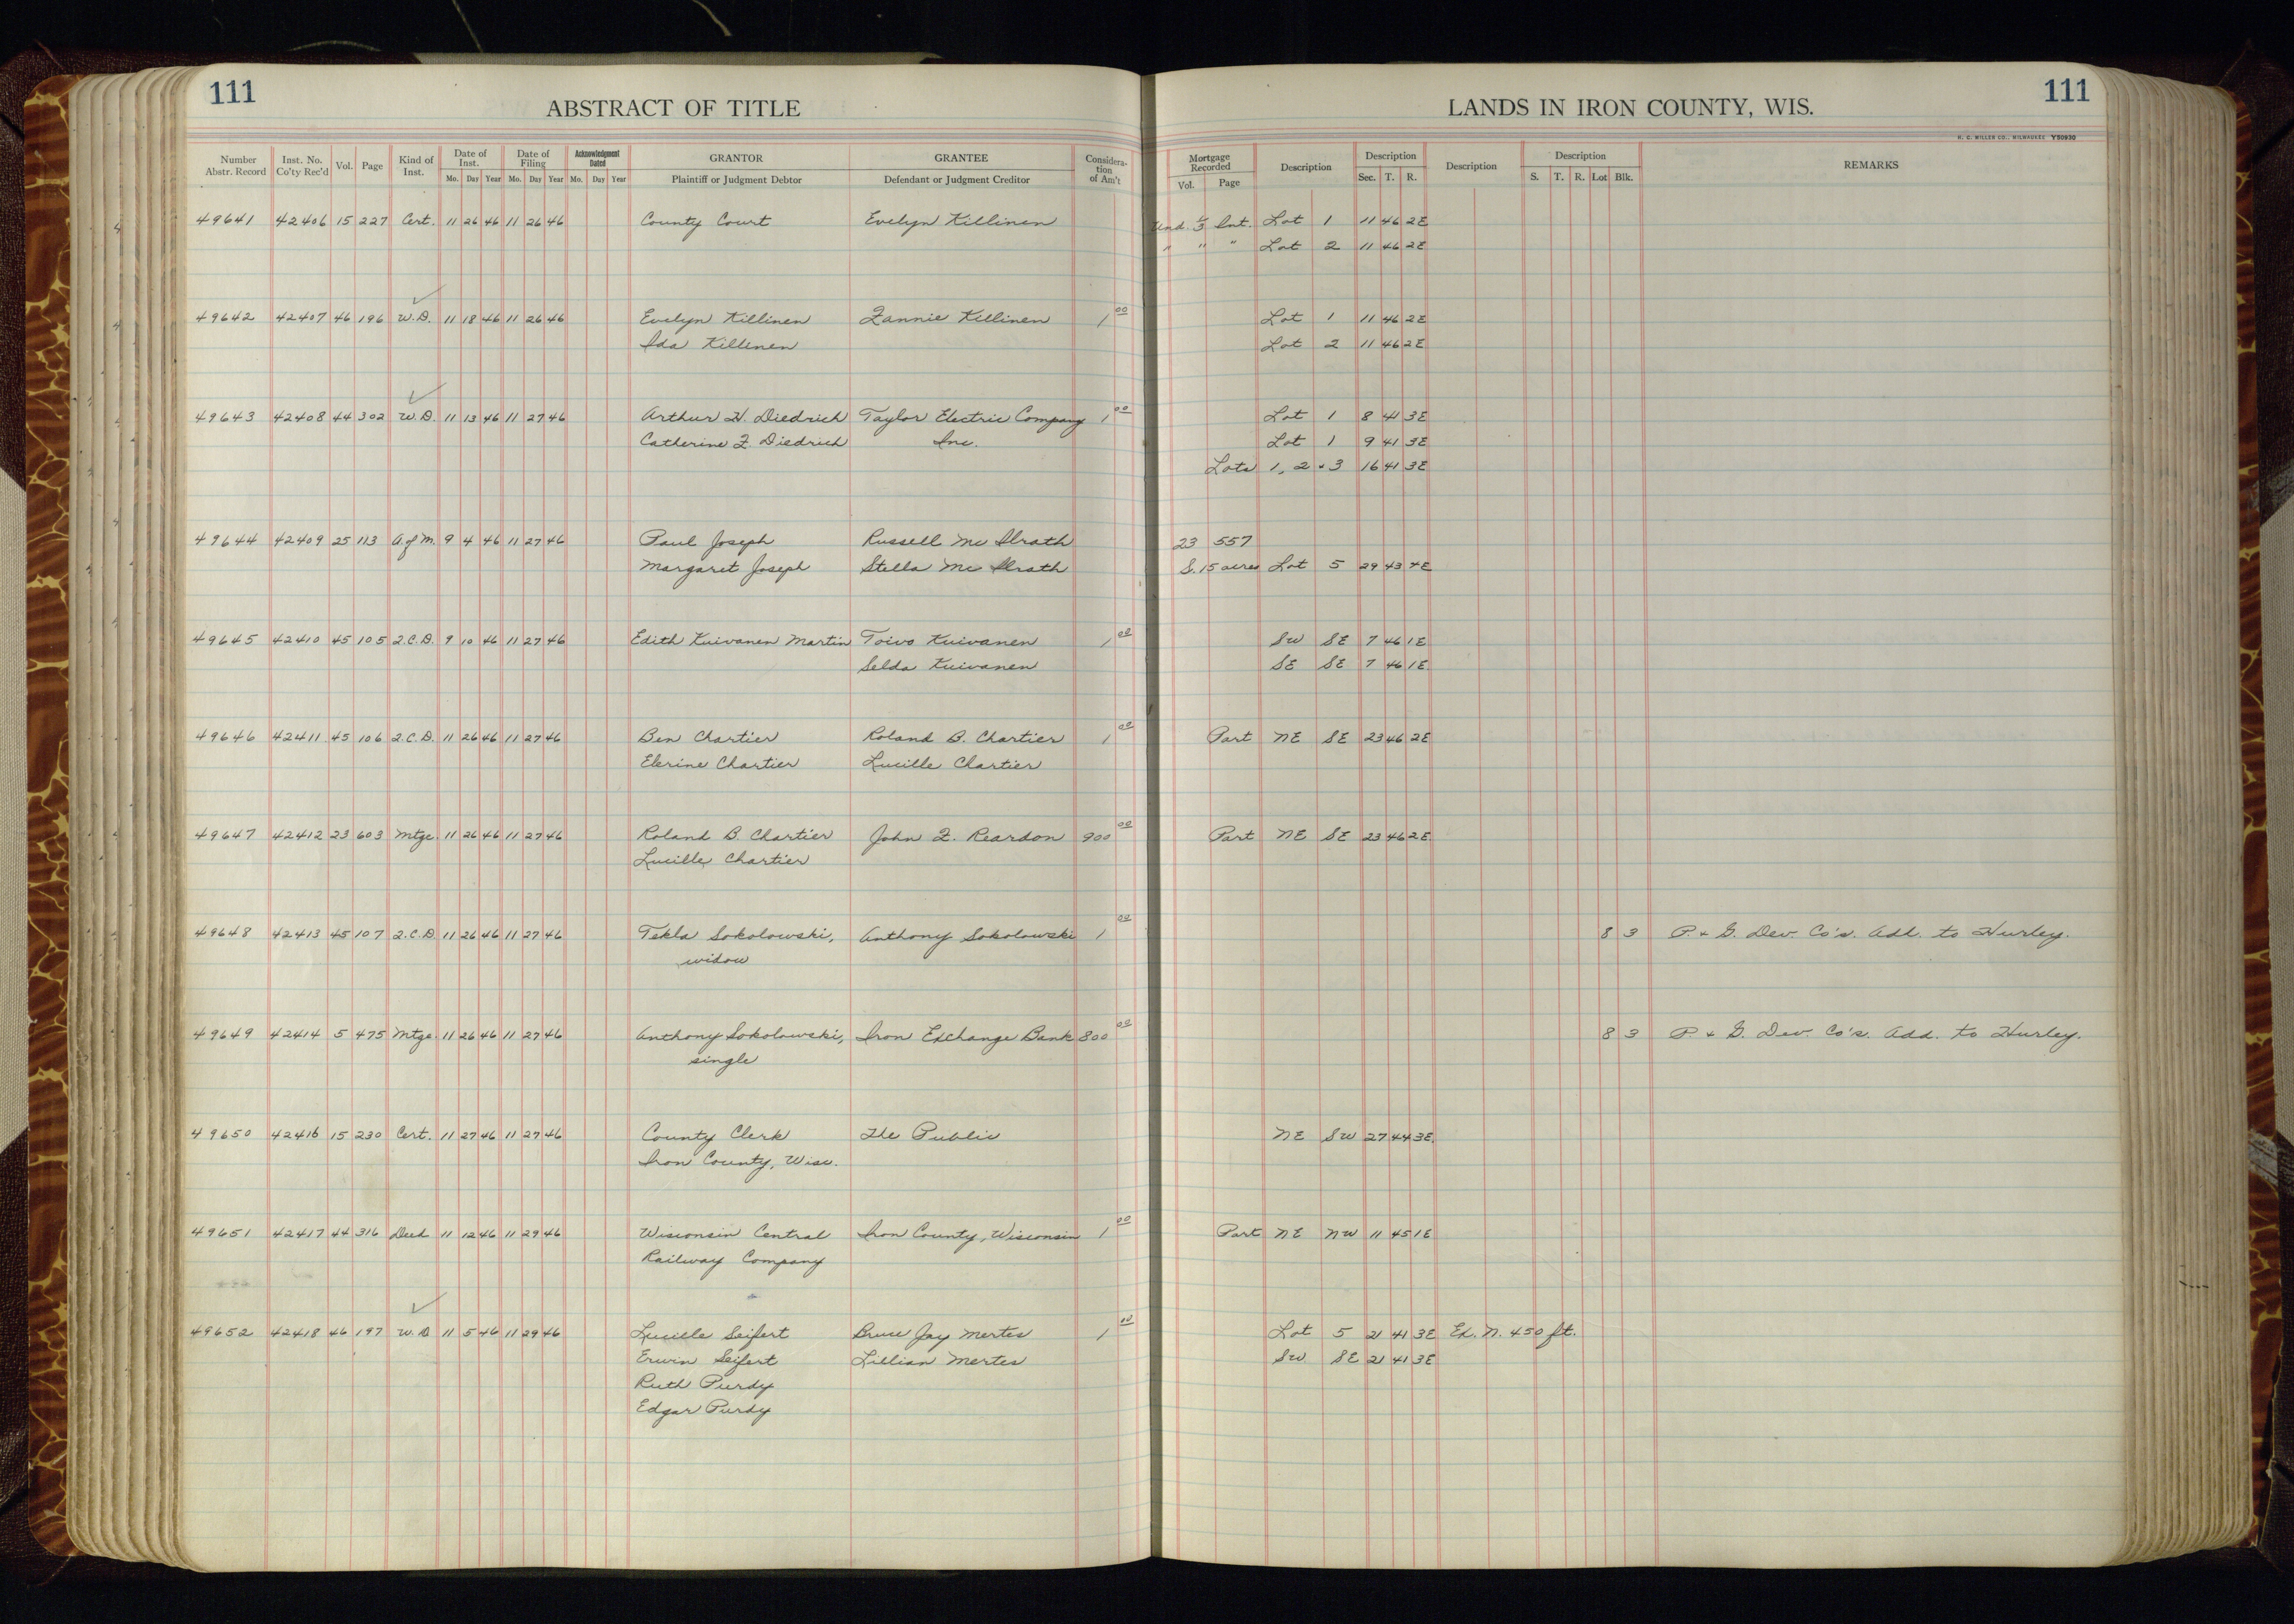 111 ABSTRACT OF TITLE LANDS IN IRON COUNTY, WIS. 111
H. C. MILLER CO., MILWAUKEE Y50930
Number Abstr. Record Inst. No. Co'ty Rec'd Vol. Page Kind of Inst. Date of Inst. Mo. Day Year Date of Filing Mo. Day Year Acknowledgment Dated Mo. Day Year GRANTOR Plaintiff or Judgment Debtor GRANTEE Defendant or Judgment Creditor Considera-tion of Am't Mortgage Recorded Vol. Page Description Description Sec. T. R. Description Description S. T. R. Lot Blk. REMARKS
49641 42406 15 227 Cert. 11 26 46 11 26 46 County Court Evelyn Killinen Und. 1/3 Int. Lot 1 11 46 2E
" " " Lot 2 11 46 2E
49642 42407 46 196 W.D. 11 18 46 11 26 46 Evelyn Killinen Fannie Killinen 1 00 Lot 1 11 46 2E
Ida Killinen Lot 2 11 46 2E
49643 42408 44 302 W.D. 11 13 46 11 27 46 Arthur H. Diedrich Taylor Electric Company 1 00 Lot 1 8 41 3E
Catherine F. Diedrich Inc. Lot 1 9 41 3E
Lots 1, 2 + 3 16 41 3E
49644 42409 25 113 A.of M. 9 4 46 11 27 46 Paul Joseph Russell Mc Ilrath 23 557
Margaret Joseph Stella Mc Ilrath S. 15 acres Lot 5 29 43 4E
49645 42410 45 105 Q.C.D. 9 10 46 11 27 46 Edith Kuivanen Martin Toivo Kuivanen 1 00 SW SE 7 46 1E
Selda Kuivanen SE SE 7 46 1E
49646 42411 45 106 Q.C.D. 11 26 46 11 27 46 Ben Chartier Roland B. Chartier 1 00 Part NE SE 23 46 2E
Elerine Chartier Lucille Chartier
49647 42412 23 603 Mtge. 11 26 46 11 27 46 Roland B. Chartier John F. Reardon 900 00 Part NE SE 23 46 2E
Lucille Chartier
49648 42413 45 107 Q.C.D 11 26 46 11 27 46 Tekla Sokolowski, Anthony Sokolowski 1 00 8 3 P. + G. Dev. Co's. Add. to Hurley.
widow
49649 42414 5 475 Mtge. 11 26 46 11 27 46 Anthony Sokolowski, Iron Exchange Bank 800 00 8 3 P. + G. Dev. Co's. Add. to Hurley.
single
49650 42416 15 230 Cert. 11 27 46 11 27 46 County Clerk The Public NE SW 27 44 3E.
Iron County, Wisc.
49651 42417 44 316 Deed 11 12 46 11 29 46 Wisconsin Central Iron County, Wisconsin 1 00 Part NE NW 11 45 1E
Railway Company
49652 42418 46 197 W.D 11 5 46 11 29 46 Lucille Seifert Bruce Jay Mertes 1 00 Lot 5 21 41 3E Ex. N. 450 ft.
Erwin Seifert Lillian Mertes SW SE 21 41 3E
Ruth Purdy
Edgar Purdy